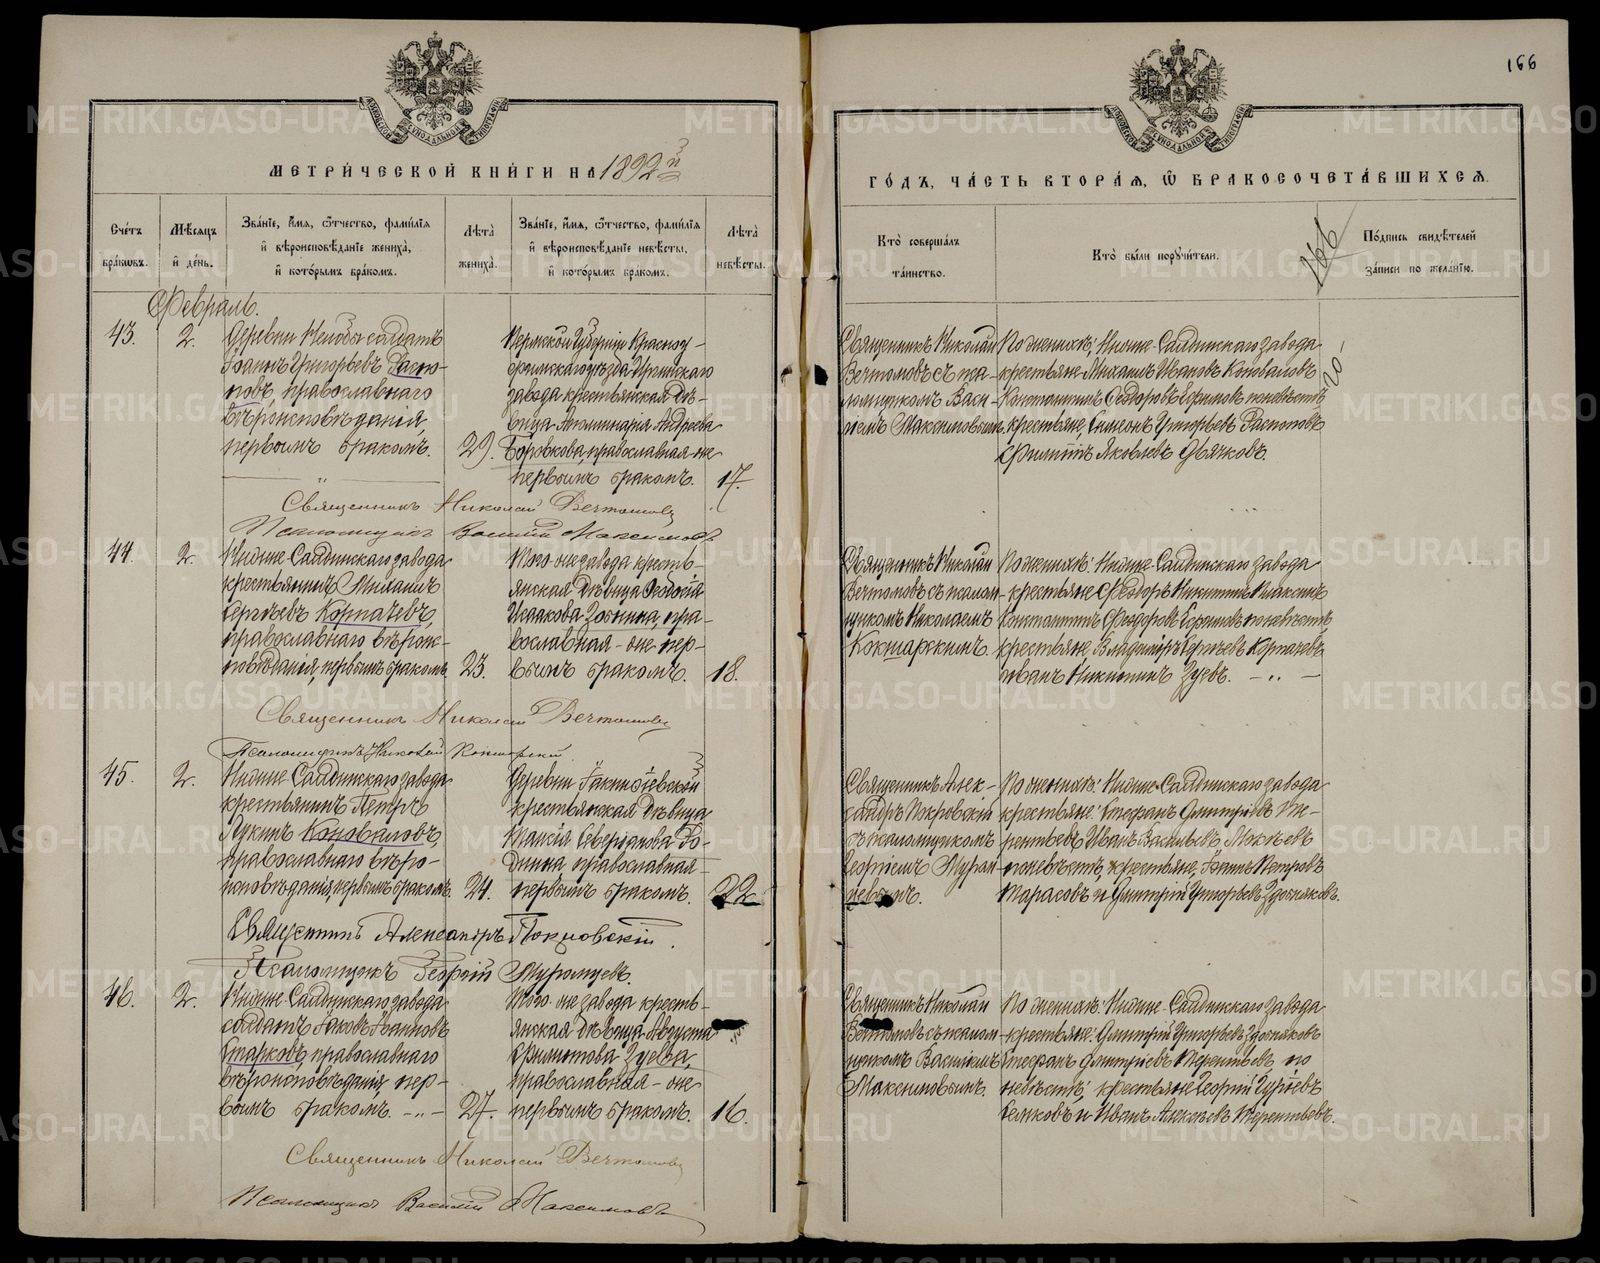 166
МЕТРИ́ЧЕСКОЙ КНИ́ГИ НА 1892й
ГО́ДЪ, ЧА́СТЬ ВТОРА́Я, Ѿ БРАКОСОЧЕТА́ВШИХСЯ.
Сче́тъ бра́ковъ.
Мѣ́сяцъ и́ де́нь.
Зва́нїе, и́мя, ѻ́тчество, фами́лїя
и́ вѣроисповѣ́данїе жениха̀,
и́ кото́рымъ бра́комъ.
Лѣта̀ жениха̀.
Зва́нїе, и́мя, ѻ́тчество, фами́лїя
и́ вѣроисповѣ́данїе невѣ́сты,
и́ кото́рымъ бра́комъ.
Лѣта̀ невѣ́сты.
Кто̀ соверша́лъ
та́инство.
Кто̀ бы́ли поручи́тели.
166
По́дпись свидѣ́телей
за́писи по жела́нїю.
Февраль.
43.
2.
Деревни Нелобы солдатъ
Іоаннъ Григорьевъ Распо-
повъ, православнаго
вѣроисповѣданія,
первымъ бракомъ.
29.
Пермской Губерніи Красно-
уфимскаго уѣзда Иргинскаго
завода крестьянская дѣ-
вица Апполинарія Андреева
Боровкова, православная - же
первымъ бракомъ.
17.
Священникъ Николай
Вечтомовъ съ пса-
ломщикомъ Васи-
ліемъ Максимовымъ.
По женихѣ; Нижне-Салдинскаго завода
крестьяне Михаилъ Ивановъ Коноваловъ
Константинъ Ѳедоровъ Ефимовъ по невѣстѣ
крестьяне, Симеонъ Григорьевъ Распоповъ
Филиппъ Яковлевъ Дьячковъ.
Священникъ Николай Вечтомовъ
Псаломщикъ Василій Максимовъ
44.
2.
Нижне-Салдинскаго завода
крестьянинъ Михаилъ
Сергѣевъ Корпачевъ,
православнаго вѣрои-
повѣданія, первымъ бракомъ.
23.
Того-же завода кресть-
янская дѣвица Ѳеодосія
Исаакова Зотнина, пра-
вославная - же пер-
вымъ бракомъ.
18.
Священникъ Николай
Вечтомовъ съ псалом-
щикомъ Николаемъ
Кокшарскимъ.
По женихѣ: Нижне-Салдинскаго завода
крестьяне Ѳеодоръ Никитинъ
Константинъ Ѳеодоровъ Ефимовъ по невѣстѣ
крестьяне Владиміръ Сергѣевъ Корпачевъ
Иванъ Никитинъ Зуевъ.
Священникъ Николай Вечтомовъ
Псаломщикъ Николай Кокшарскій
45.
2.
Нижне-Салдинскаго завода
крестьянинъ Петръ
Лукинъ Коноваловъ,
православнаго вѣро-
исповѣданія, первымъ бракомъ.
24.
Деревни
крестьянская дѣвица
Таисія Северіанова Ро-
дина, православная
первымъ бракомъ.
22
Священникъ Алек-
сандръ Покровскій
съ псаломщикомъ
Георгіемъ Муром-
цевымъ.
По женихѣ: Нижне-Салдинскаго завода
крестьяне: Стефанъ Димитріевъ Те-
рентьевъ Иванъ Васильевъ
по невѣстѣ, крестьяне, Іоаннъ Петровъ
Тарасовъ и Димитрій Григорьевъ Здобняковъ.
Священникъ Александръ Покровскій.
Псаломщикъ Георгій Муромцевъ.
46.
2.
Нижне-Салдинскаго завода
солдатъ Іаковъ Іоанновъ
Старковъ, православнаго
вѣроисповѣданія, пер-
вымъ бракомъ.
27.
Того-же завода кресть-
янская дѣвица Августа
Филиппова Зуева,
православная - же
первымъ бракомъ.
16.
Священникъ Николай
Вечтомовъ съ псалом-
щикомъ Василіемъ
Максимовымъ.
По женихѣ: Нижне-Салдинскаго завода
крестьяне: Димитрій Григорьевъ Здобняковъ
Стефанъ Димитріевъ Терентьевъ, по
невѣстѣ; крестьяне Георгій Гурьевъ
и Иванъ Алексѣевъ Терентьевъ.
Священникъ Николай Вечтомовъ
Псаломщикъ Василій Максимовъ
METRIKI.GASO-URAL.RU